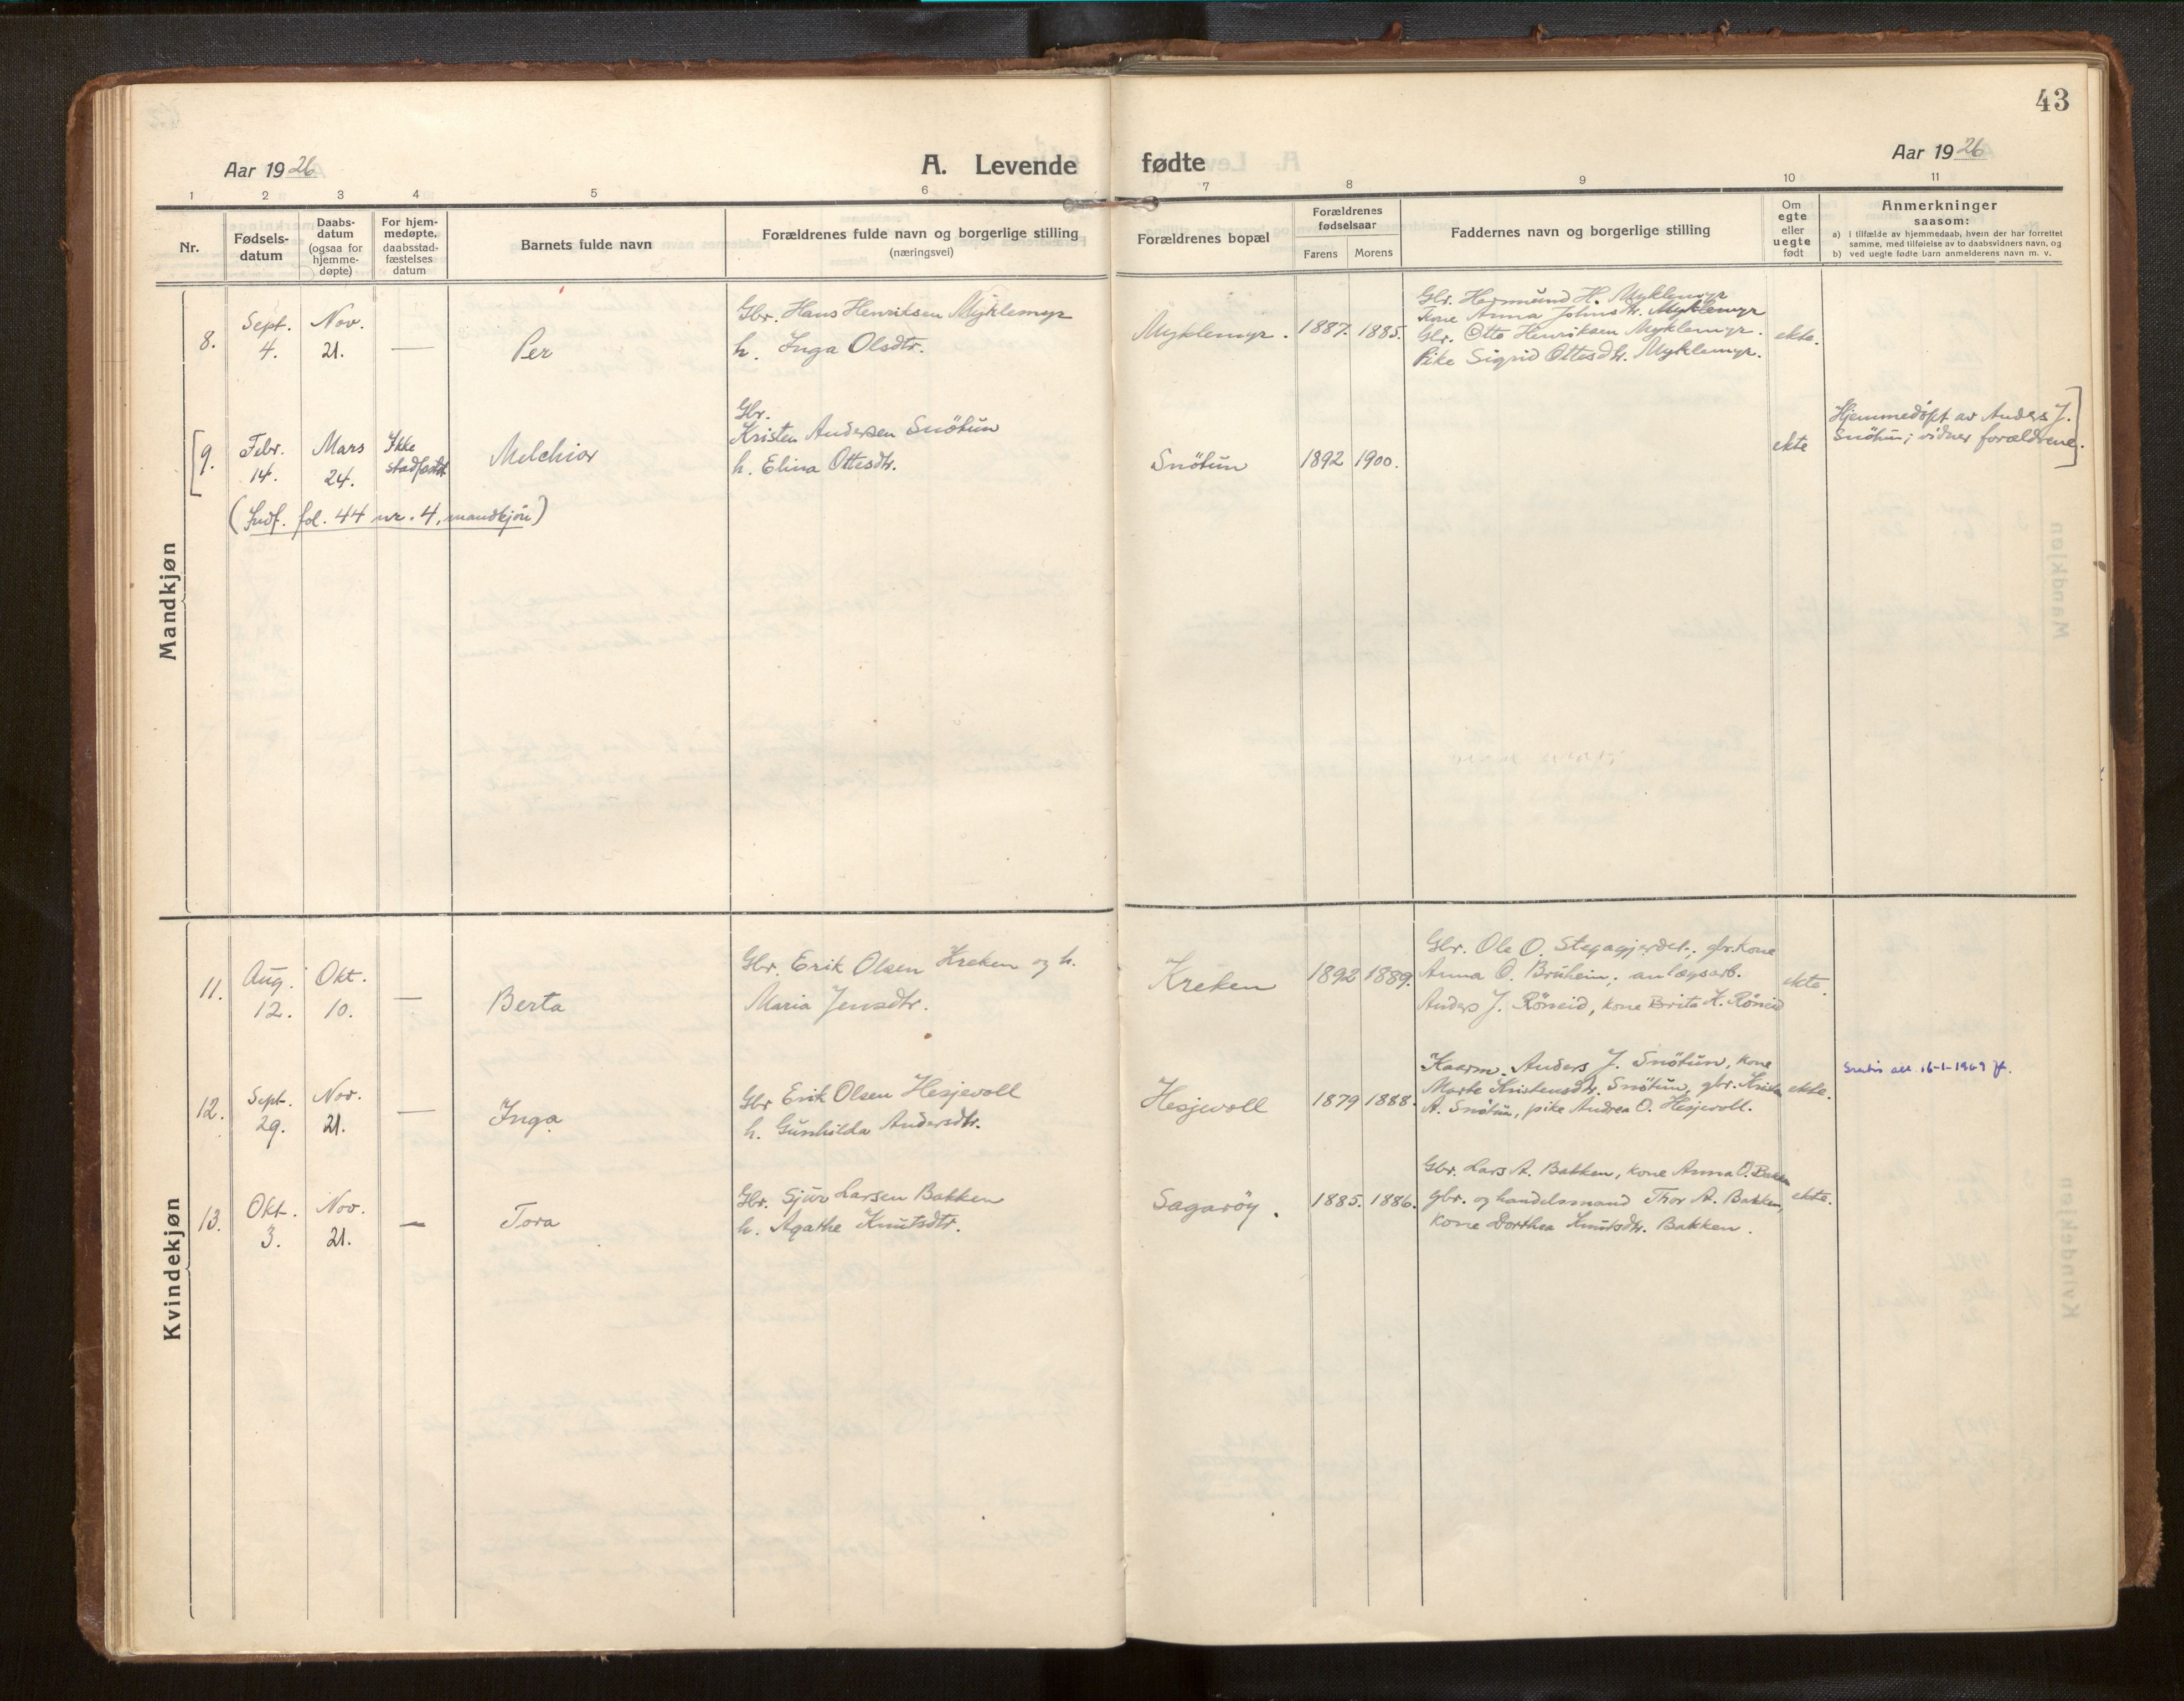 43
Aar 1926
A. Levende fødte
Aar 1926
1 2 3 4 5 6 7 8 9 10 11
Nr.
Fødsels-
datum
Daabs-
datum
(ogsaa for
hjemme-
døpte)
For hjem-
medøpte,
daabsstad-
fæstelses
datum
Barnets fulde navn
Forældrenes fulde navn og borgerlige stilling
(næringsvei)
Forældrenes bopæl
Forældrenes
fødselsaar
Farens Morens
Faddernes navn og borgerlige stilling
Om
egte
eller
uegte
født
Anmerkninger
saasom:
a) I tilfælde av hjemmedaab, hvem der har forrettet
samme, med tilføielse av to daabsvidners navn, og
b) ved uegte fødte barn anmelderens navn m. v.
Mandkjøn
8.
Sept.
4.
Nov.
21.
—
Per
Gbr. Hans Henriksen Myklemyr
h. Inga Olsdtr.
Myklemyr.
1887. 1885.
Gbr. Hermund H. Myklemyr
Kone Anna Johnsdtr. Myklemyr
Gbr. Otto Henriksen Myklemyr.
Pike Sigrid Ottesdtr. Myklemyr.
ekte.
[9.
Febr.
14.
Mars
24.
Ikke
stadfæstet
Melchior
Gbr.
Kristen Andersen Snötun
h. Elina Ottesdtr.
Snötun
1892 1900.
ekte
Hjemmedöpt av Anders J.
Snötun; vidner forældrene.]
(Indf. fol. 44 nr. 4, mandkjön)
Kvindekjøn
11.
Aug.
12.
Okt.
10.
—
Berta
Gbr. Erik Olsen Kreken og h.
Maria Jensdtr.
Kreken
1892 1889.
Gbr. Ole O. Stegagjerdet; gbr.kone
Anna O. Bruheim; anlægsarb.
Anders J. Röneid, kone Brita K. Röneid
ekte.
12.
Sept.
29.
Nov.
21.
—
Inga
Gbr Erik Olsen Hesjevoll
h. Gunhilda Andersdtr.
Hesjevoll
1879 1888.
Kaarm. Anders J. Snötun, kone
Marte Kristensdtr. Snötun, gbr. Kristen
A. Snötun, pike Andrea O. Hesjevoll.
ekte.
att. 16-1-1969
13.
Okt.
3.
Nov.
21.
—
Tora
Gbr. Sjur Larsen Bakken
h. Agathe Knutsdtr.
Sagaröy.
1885. 1886.
Gbr. Lars A. Bakken, kone Anna O. Bakken
gbr. og handelsmand Thor A. Bakken,
kone Dorthea Knutsdtr. Bakken.
ekte.